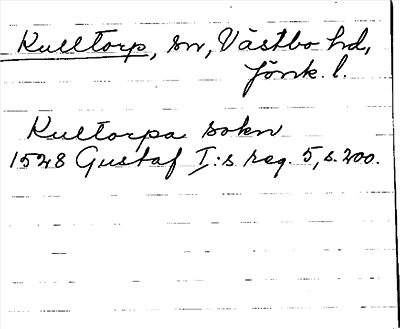 Kulltorp, sn, Västbo hd,
Jönk. l.
Kultorpa sokn
1528 Gustaf I:s reg. 5, s. 200.